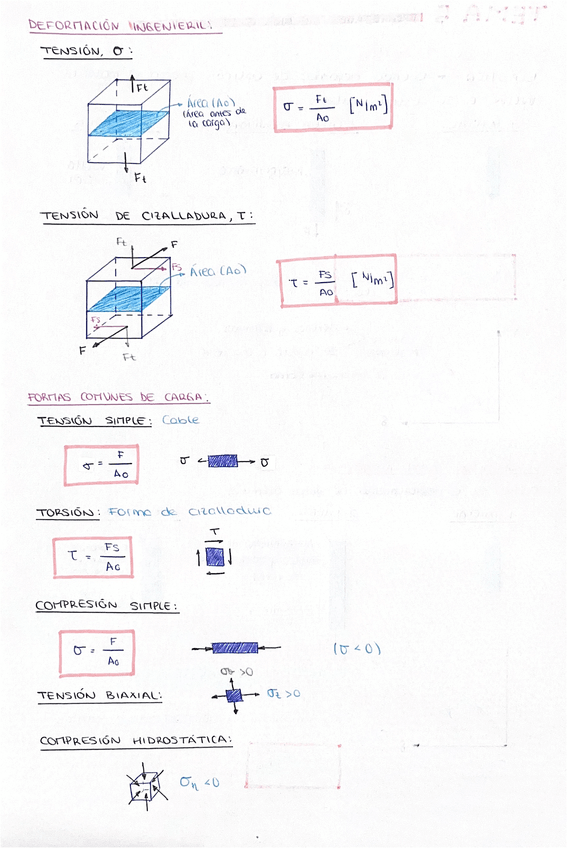 DEFORMACIÓN INGENIERIL:
TENSIÓN, σ:
Ft
Área (Ao)
(Área antes de
la carga)
Ft
σ = Ft / Ao [N/m²]
TENSIÓN DE CIZALLADURA, τ:
Ft
F
Fs
Área (Ao)
Fs
F
Ft
τ = Fs / Ao [N/m²]
FORMAS COMUNES DE CARGA:
TENSIÓN SIMPLE: Cable
σ = F / Ao
σ σ
TORSIÓN: Forma de cizalladura
τ = Fs / Ao
τ
COMPRESIÓN SIMPLE:
σ = F / Ao
(σ < 0)
>0
TENSIÓN BIAXIAL:
σt >0
COMPRESIÓN HIDROSTÁTICA:
σh <0